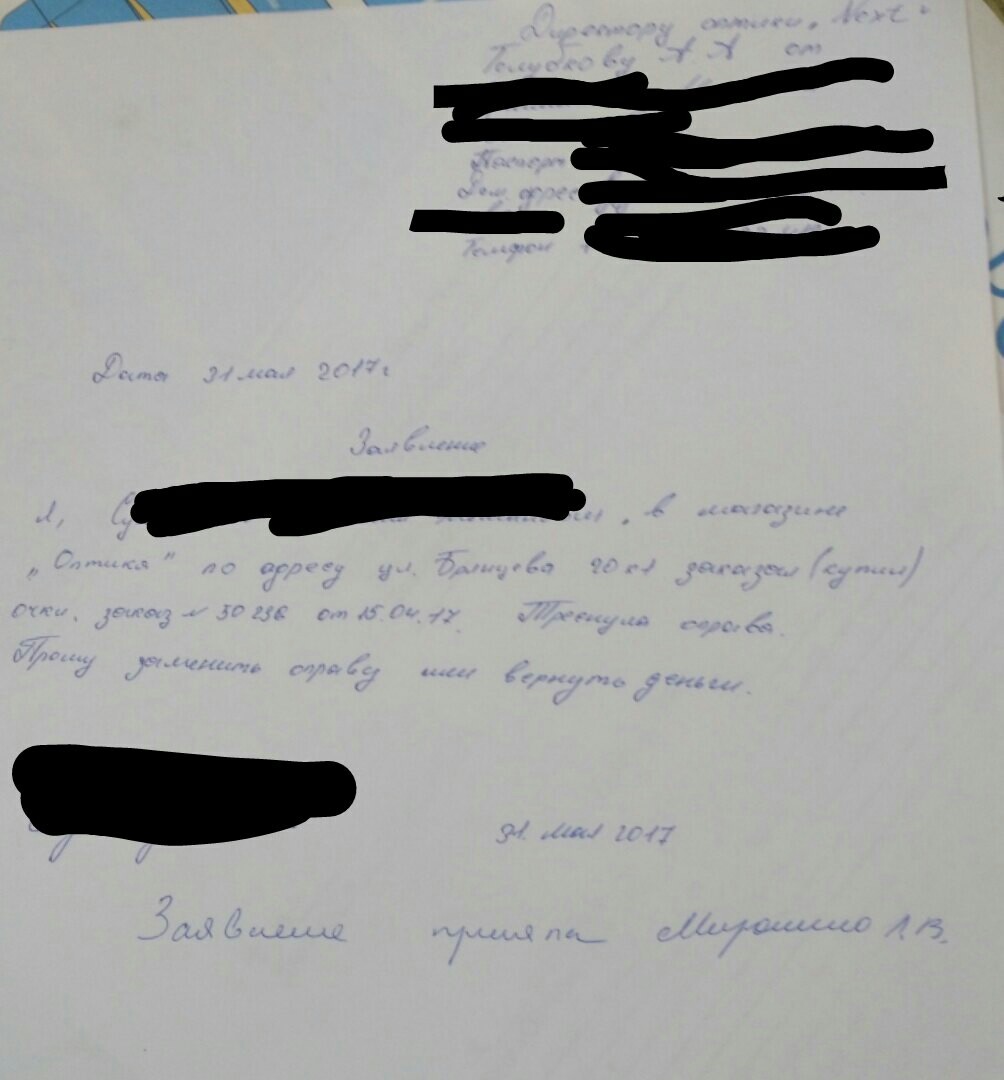 Директору оптики „Next"
Голубкову А А от
Паспорт
Дом. адрес
Телефон
Дата 31 мая 2017г
Заявление
Я, , в магазине
„Оптика" по адресу ул. Брянцева 20к1 заказал (купил)
очки. заказ № 30236 от 15.04.17. Треснула оправа.
Прошу заменить оправу или вернуть деньги.
31. мая 2017
Заявление приняла